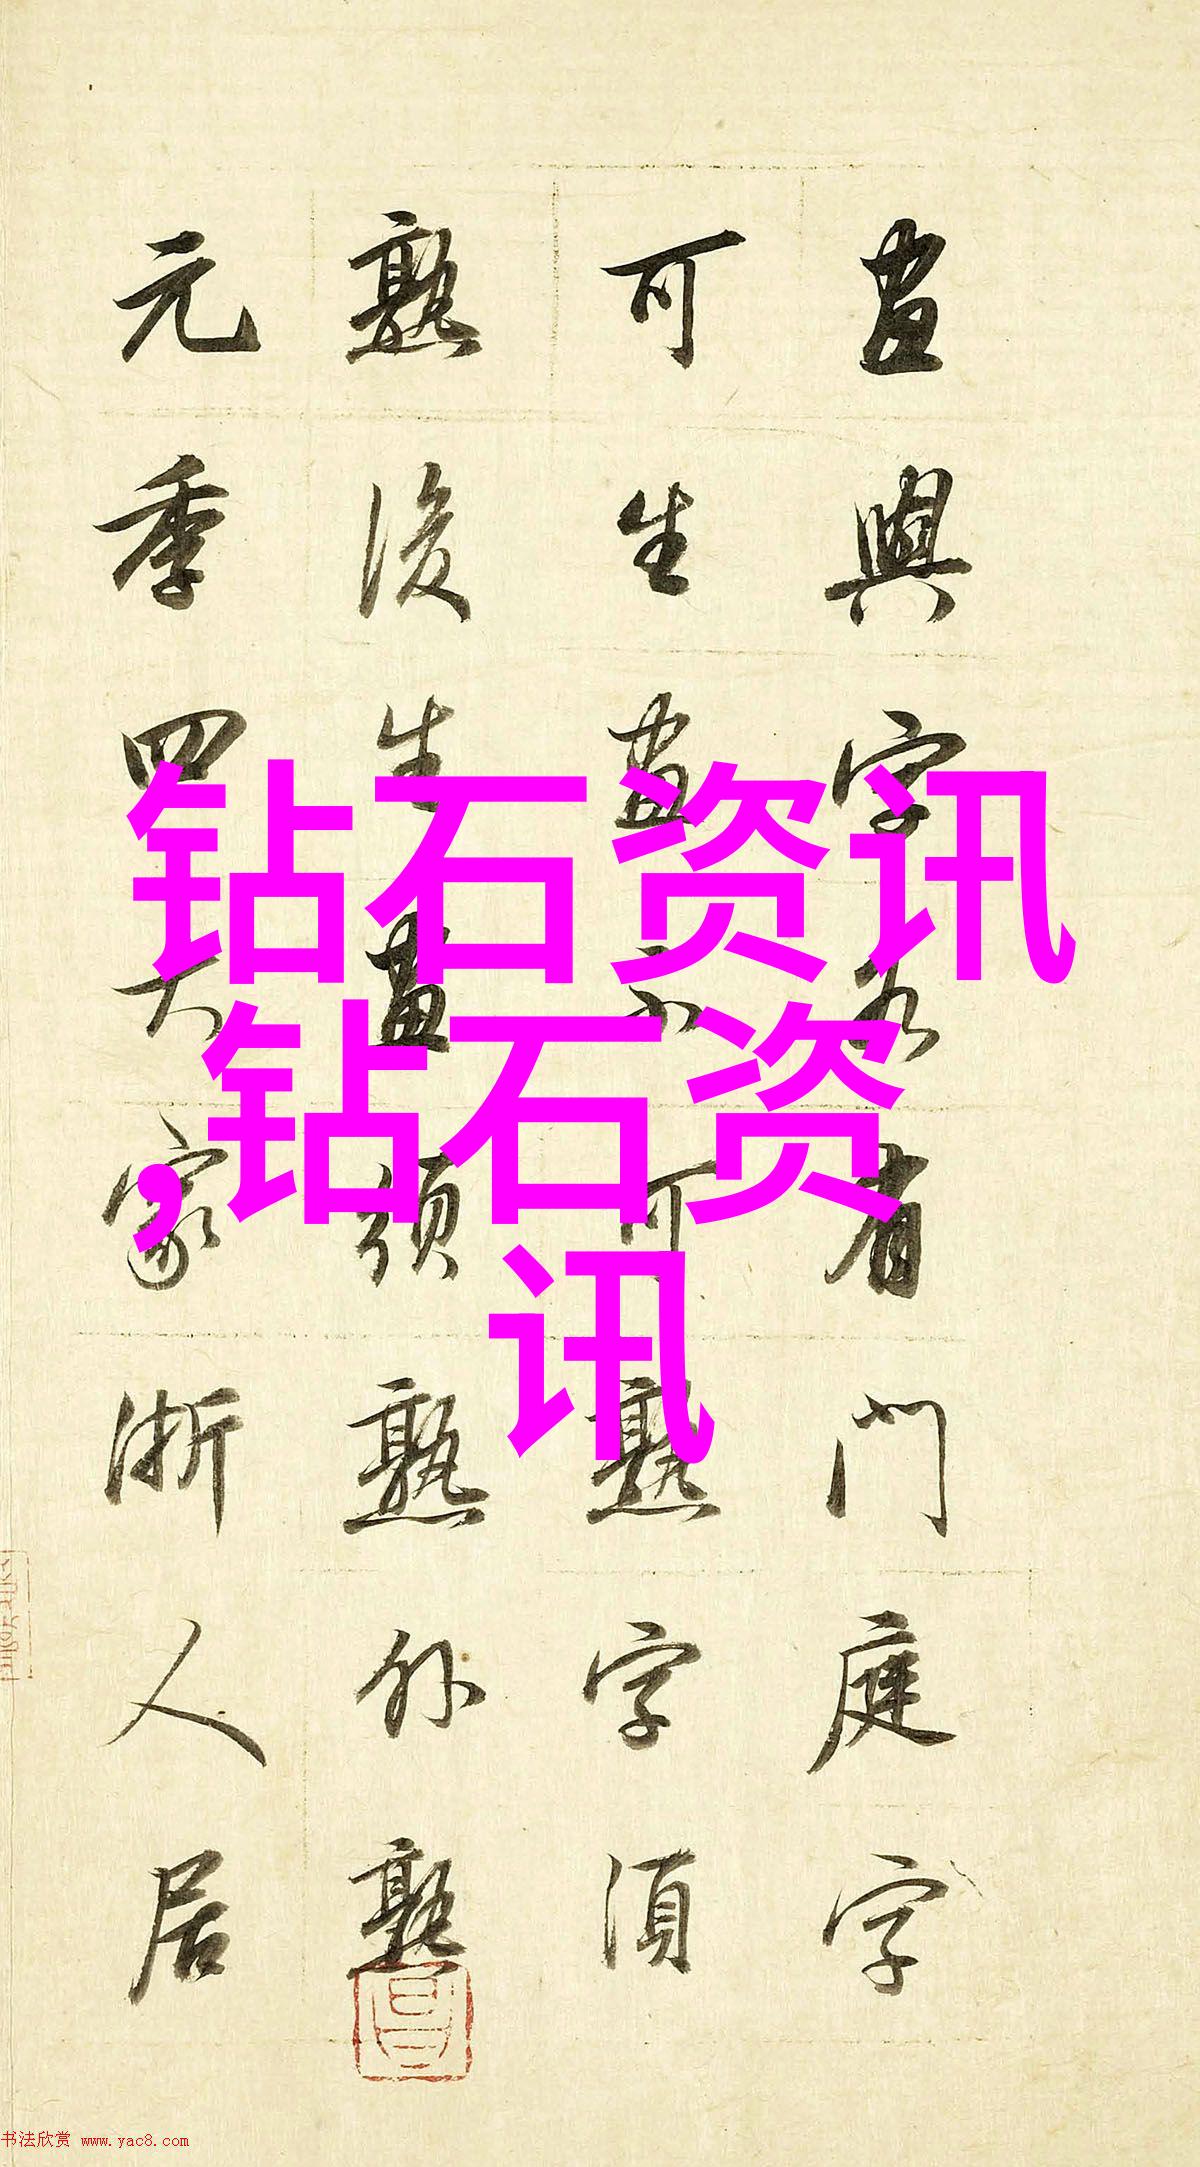 畫與字各有門庭字
可生畫不可熟字須
熟後生畫須熟外熟
元季四大家浙人居
钻石资讯
,钻石资
讯
书法欣赏 www.yac8.com